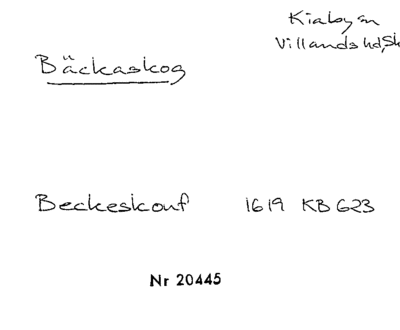 Kiaby sn
Villands hd, Sk
Bäckaskog
Beckeskouf 1619 KB G23
Nr 20445